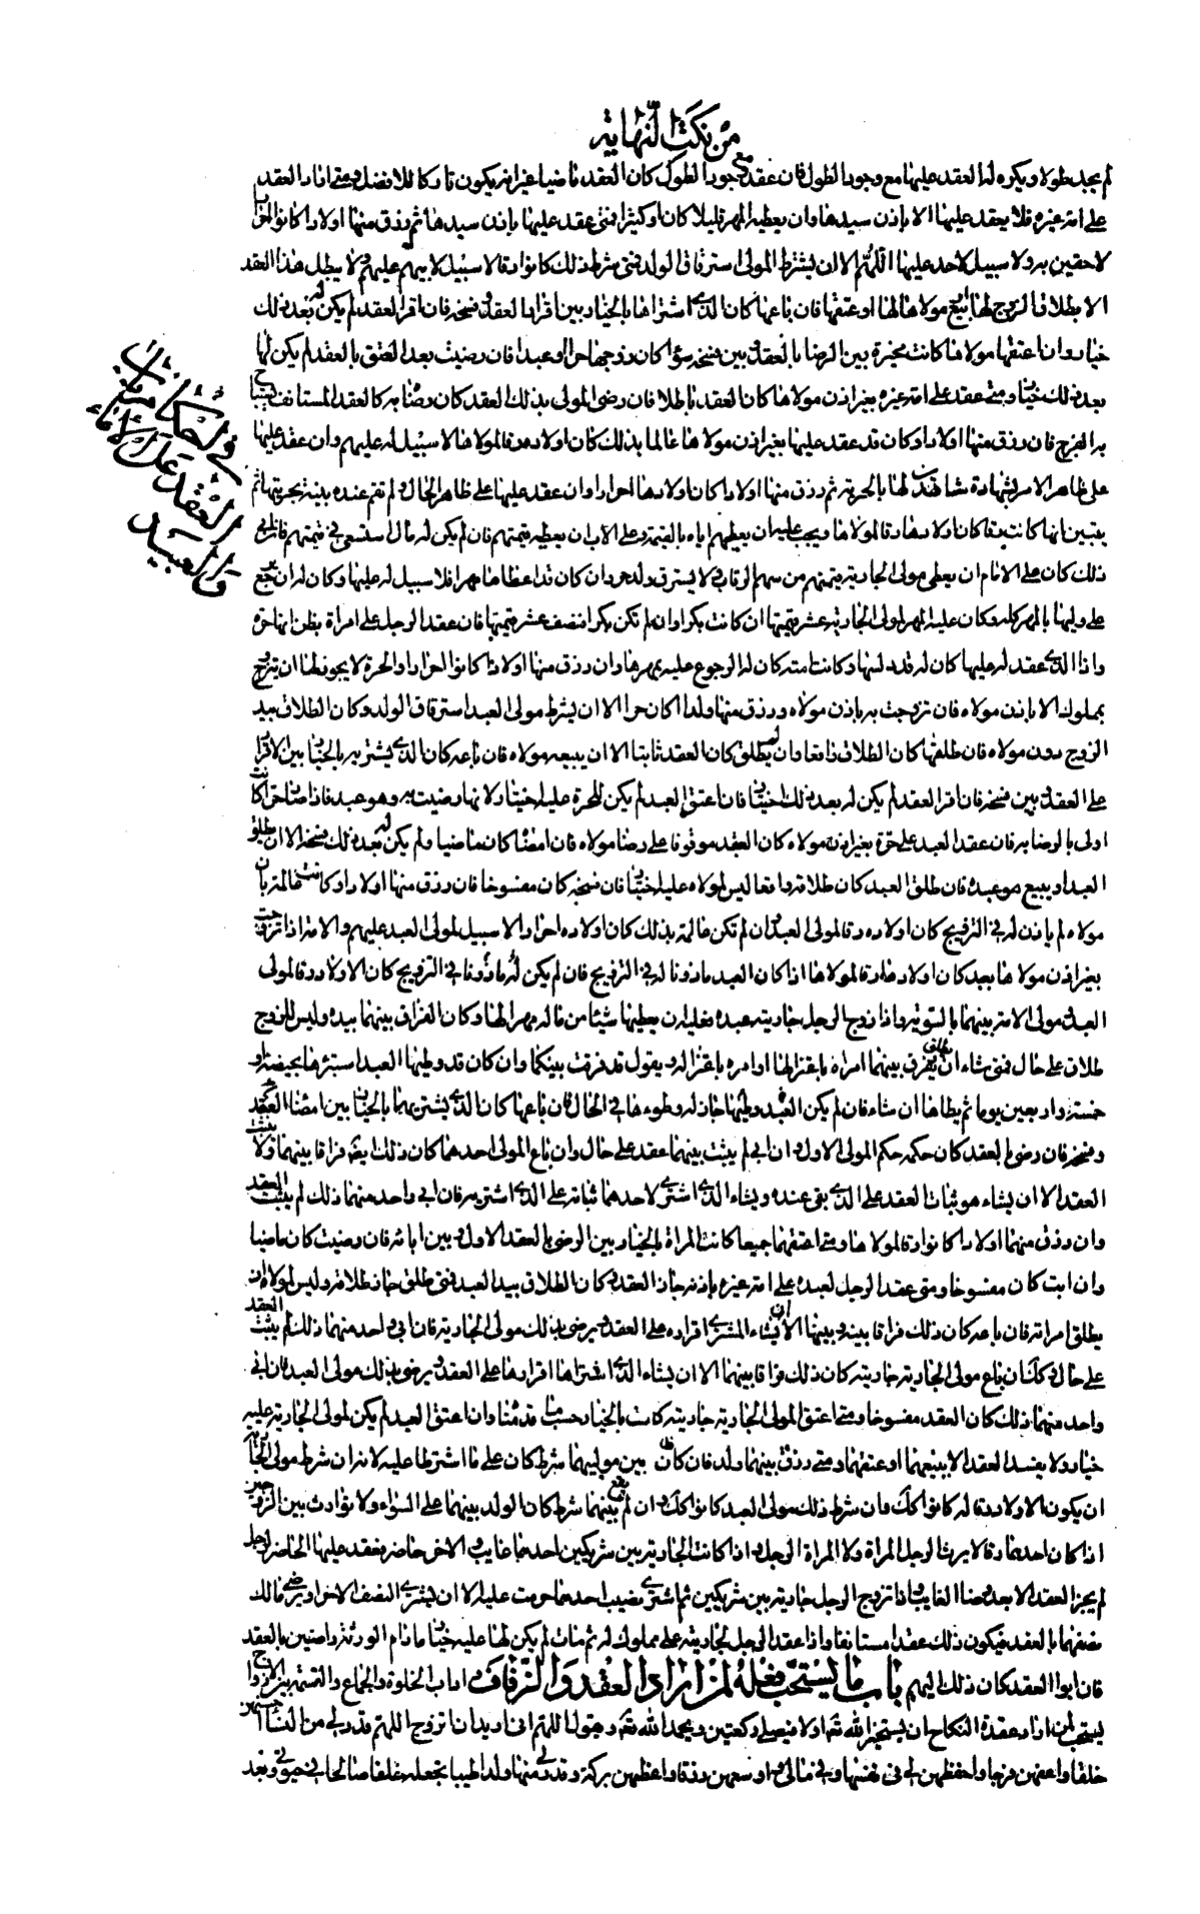 من نكت النهاية
لم يجد طولا ويكره له العقد عليها مع وجود الطول فان عقد مع وجود الطول كان العقد ماضيا غير انه يكون تاركا للافضل ومتى اراد العقد
على امة غيره فلا يعقد عليها الا باذن سيدها وان يعطيه المهر قليلا كان او كثيرا فمتى عقد عليها باذن سيدها ثم رزق منها اولادا كانوا احرارا
لاحقين به ولا سبيل لاحد عليها اللهم الا ان يشترط المولى استرقاق الولد فمتى شرط ذلك كانوا رقا لا سبيل لابيهم عليهم ولا يبطل هذا العقد
الا بطلاق الزوج لها او بيع مولاها لها او عتقها فان باعها كان الذي اشتراها بالخيار بين اقرار العقد وفسخه فان اقر العقد لم يكن له بعد ذلك
خيار وان اعتقها مولاها كانت مخيرة بين الرضا بالعقد وبين فسخه سواء كان زوجها حرا او عبدا فان رضيت بعد العتق بالعقد لم يكن لها
بعد ذلك خيار ومتى عقد على امة غيره بغير اذن مولاها كان العقد باطلا فان رضى المولى بذلك العقد كان رضاه به كالعقد المستانف يستباح
به الفرج فان رزق منها اولادا وكان قد عقد عليها بغير اذن مولاها عالما بذلك كان اولاده رقا لمولاها لا سبيل له عليهم وان عقد عليها
على ظاهر الامر بشهادة شاهدين لها بالحرية ثم رزق منها اولادا كان اولادها احرارا وان عقد عليها على ظاهر الحال ولم تقم عنده بينة بحريتها ثم
يتبين انها كانت رقا كان اولادها رقا لمولاها ويجب عليه ان يعطيهم اياه بالقيمة وعلى الاب ان يعطيه قيمتهم فان لم يكن له مال استسعى في قيمتهم فان ابى
ذلك كان على الامام ان يعطى مولى الجارية قيمتهم من سهم الرقاب ولا يسترق ولد حر وان كان قد اعطاها مهرا فلا سبيل له عليها وكان له ان يرجع
على وليها بالمهر كله وكان عليه لمولى الجارية عشر قيمتها ان كانت بكرا وان لم تكن بكرا نصف عشر قيمتها فان عقد الرجل على امراة بظن انها حرة
واذا الذي عقد له عليها كان له قد لبسها وكانت امته كان له الرجوع عليه بمهرها وان رزق منها اولادا كانوا احرارا والحرة لا يجوز لها ان تتزوج
بمملوك الا باذن مولاه فان تزوجت به باذن مولاه ورزق منها ولدا كان حرا الا ان يشرط مولى العبد استرقاق الولد وكان الطلاق بيد
الزوج دون مولاه فان طلقها كان الطلاق واقعا وان لم يطلق كان العقد ثابتا الا ان يبيعه مولاه فان باعه كان الذي يشتريه بالخيار بين الاقرار
على العقد وبين فسخه فان اقر العقد لم يكن له بعد ذلك اختيار فان اعتق العبد لم يكن للحرة عليه اختيار لانها رضيت به وهو عبد فاذا صار حرا كانت
اولى بالرضا به فان عقد العبد على حرة بغير اذن مولاه كان العقد موقوفا على رضا مولاه فان امضاه كان ماضيا ولم يكن له بعد ذلك فسخه الا ان يطلق
العبد او يبيع هو عبده فان طلق العبد كان طلاقه واقعا ليس لمولاه عليه اختيار فان فسخه كان مفسوخا فان رزق منها اولادا وكانت عالمة بان
مولاه لم ياذن له في التزويج كان اولاده رقا لمولى العبد وان لم تكن عالمة بذلك كان اولاده احرارا لا سبيل لمولى العبد عليهم والامة اذا تزوجت
بغير اذن مولاها بعبد كان اولادها رقا لمولاها اذا كان العبد ماذونا له في التزويج فان لم يكن له ماذونا في التزويج كان الاولاد رقا لمولى
العبد ومولى الامة بينهما بالسوية واذا زوج الرجل جاريته عبده فعليه ان يعطيها شيئا من ماله مهرا لها وكان الفراق بينهما بيده وليس للزوج
طلاق على حال فمتى شاء ان يفرق بينهما امراه باعتزالها او امره باعتزاله ويقول قد فرقت بينكما وان كان قد وطيها العبد استبرئها بحيضة او
خمسة واربعين يوما ثم يطاها ان شاء فان لم يكن العبد وطيها جاز له وطوءها في الحال فان باعها كان الذي يشتريهما بالخيار بين امضاء العقد
وفسخه فان رضى العقد كان حكمه حكم المولى الاول وان ابى لم يثبت بينهما عقد على حال وان باع المولى احدهما كان ذلك ايضا فراقا بينهما ولا يثبت
العقد الا ان يشاء هو ثبات العقد على الذي بقى عنده ويشاء الذي اشترى لاحدهما ثباته على الذي اشتريه فان ابى واحد منهما ذلك لم يثبت العقد
وان رزق منهما اولادا كانوا رقا لمولاها ومتى اعتقهما جميعا كانت المراة بالخيار بين الرضى بالعقد الاول وبين ابائه فان رضيت كان ماضيا
وان ابت كان مفسوخا ومتى عقد الرجل لعبده على امة غيره باذنه جاز العقد وكان الطلاق بيد العبد فمتى طلق جاز طلاقه وليس لمولاه ان
يطلق امراته فان باعه كان ذلك فراقا بينه وبينها الا ان يشاء المشتري اقراره على العقد ويرضى بذلك مولى الجارية فان ابى واحد منهما ذلك لم يثبت العقد
على حال وكذلك ان باع مولى الجارية جاريته كان ذلك فراقا بينهما الا ان يشاء الذي اشتراها اقرارها على العقد ويرضى بذلك مولى العبد فان ابى
واحد منهما ذلك كان العقد مفسوخا ومتى اعتق المولى الجارية جاريته كانت بالخيار حسب ما قدمناه وان اعتق العبد لم يكن لمولى الجارية عليه
خيار ولا يفسد العقد الا ببيعهما او عتقهما ومتى رزق بينهما ولد فان كان بين مولييهما شرط كان على ما اشترطا عليه لانه ان شرط مولى الجارية
ان يكون الاولاد رقا له كانوا كك وان شرط ذلك مولى العبد كانوا كك وان لم يقع بينهما شرط كان الولد بينهما على السواء ولا توارث بين الزوجين
اذا كان احدهما رقا لا يرث الرجل المراة ولا المراة الرجل واذا كانت الجارية بين شريكين احدهما غايب والاخر حاضر فعقد عليها الحاضر لرجل
لم يجز العقد الا بعد رضا الغايب واذا تزوج الرجل جارية بين شريكين ثم اشترى نصيب احدهما حرمت عليه الا ان يشتري النصف الاخر او يرضى مالك
نصفها بالعقد فيكون ذلك عقدا مستانفا واذا عقد الرجل لجاريته على مملوك له ثم مات لم يكن لها عليه خيار مادام الورثة راضين بالعقد
فان ابوا العقد كان ذلك اليهم باب ما يستحب فعله لمن اراد العقد والزفاف واداب الخلوة والجماع والقسمة بين الازواج
يستحب لمن اراد عقدة النكاح ان يستخير الله تعالى اولا فيصلي ركعتين ويحمد الله تعالى ويقول اللهم اني اريد ان اتزوج اللهم قدر لي من النساء احسنهن
خلقا واعفهن فرجا واحفظهن لي في نفسها وفي مالي واوسعهن رزقا واعظمهن بركة وقدر لي منها ولدا طيبا تجعله خلفا صالحا في حيوتي وبعد
في احكام
العقد على الاماء
والعبيد